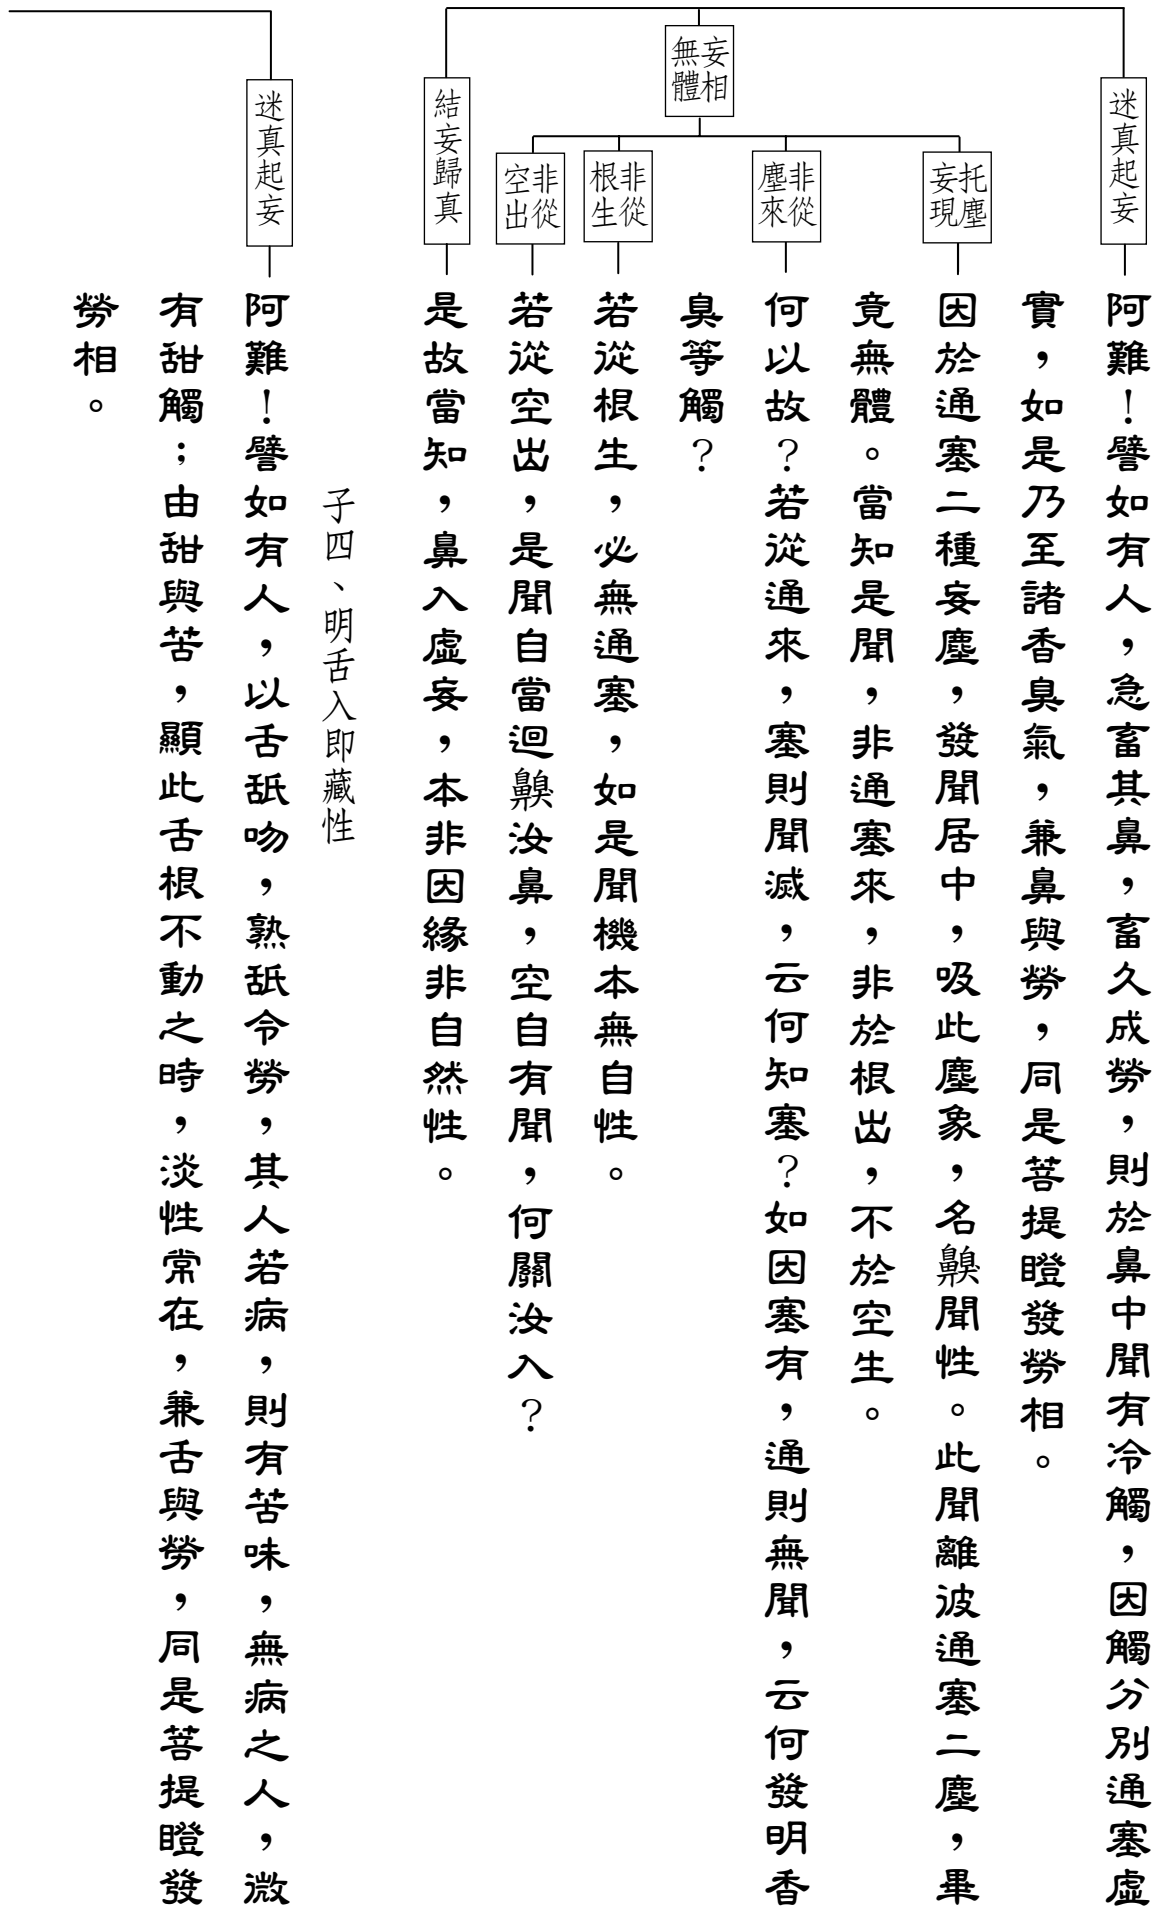 迷真起妄
阿難！譬如有人，急畜其鼻，畜久成勞，則於鼻中聞有冷觸，因觸分別通塞虛
實，如是乃至諸香臭氣，兼鼻與勞，同是菩提瞪發勞相。
妄相
無體
托塵
妄現
因於通塞二種妄塵，發聞居中，吸此塵象，名齅聞性。此聞離波通塞二塵，畢
竟無體。當知是聞，非通塞來，非於根出，不於空生。
非從
塵來
何以故？若從通來，塞則聞滅，云何知塞？如因塞有，通則無聞，云何發明香
臭等觸？
非從
根生
若從根生，必無通塞，如是聞機本無自性。
非從
空出
若從空出，是聞自當迴齅汝鼻，空自有聞，何關汝入？
結妄歸真
是故當知，鼻入虛妄，本非因緣非自然性。
子四、明舌入即藏性
迷真起妄
阿難！譬如有人，以舌舐吻，熟舐令勞，其人若病，則有苦味，無病之人，微
有甜觸；由甜與苦，顯此舌根不動之時，淡性常在，兼舌與勞，同是菩提瞪發
勞相。